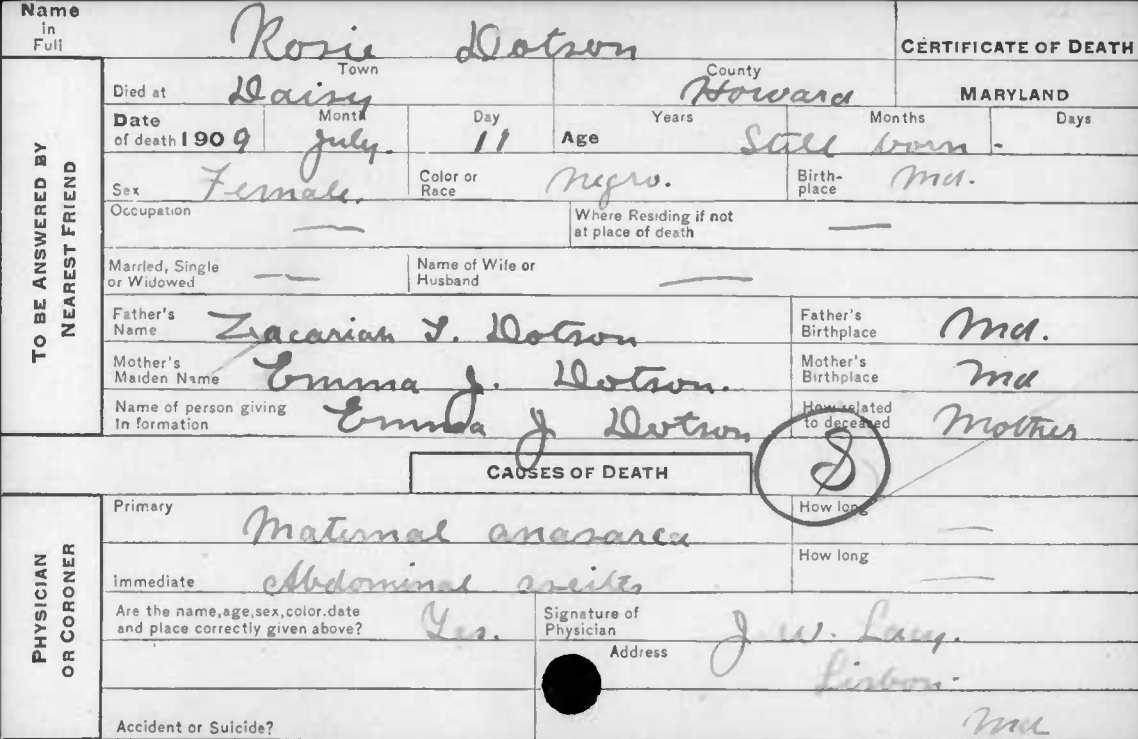 Name in Full Rosie Dotson CERTIFICATE OF DEATH
TO BE ANSWERED BY NEAREST FRIEND
Died at Town Daisy County Howard MARYLAND
Date of death 1909 Month July. Day 11 Age Years Months Days Still born -
Sex Female. Color or Race Negro. Birth-place Md.
Occupation — Where Residing if not at place of death —
Married, Single or Widowed — Name of Wife or Husband —
Father's Name Zacariah T. Dotson Father's Birthplace Md.
Mother's Maiden Name Emma J. Dotson. Mother's Birthplace Md
Name of person giving In formation Emma J Dotson How related to deceased Mother
CAUSES OF DEATH S
PHYSICIAN OR CORONER
Primary Maternal anasarca How long —
Immediate Abdominal How long —
Are the name,age,sex,color.date and place correctly given above? Yes. Signature of Physician J. W. Lacy.
Address Lisbon.
Accident or Suicide? Md